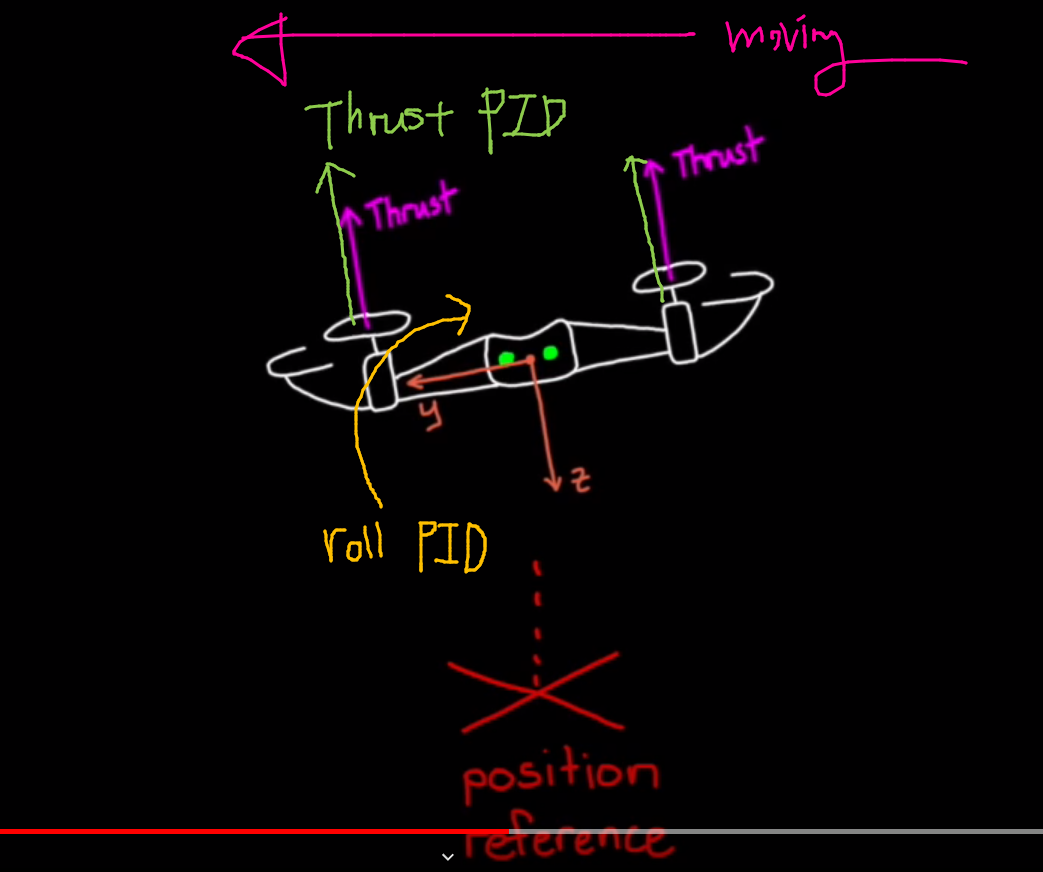 moving
Thrust PID
Thrust
Thrust
y
z
roll PID
position
reference